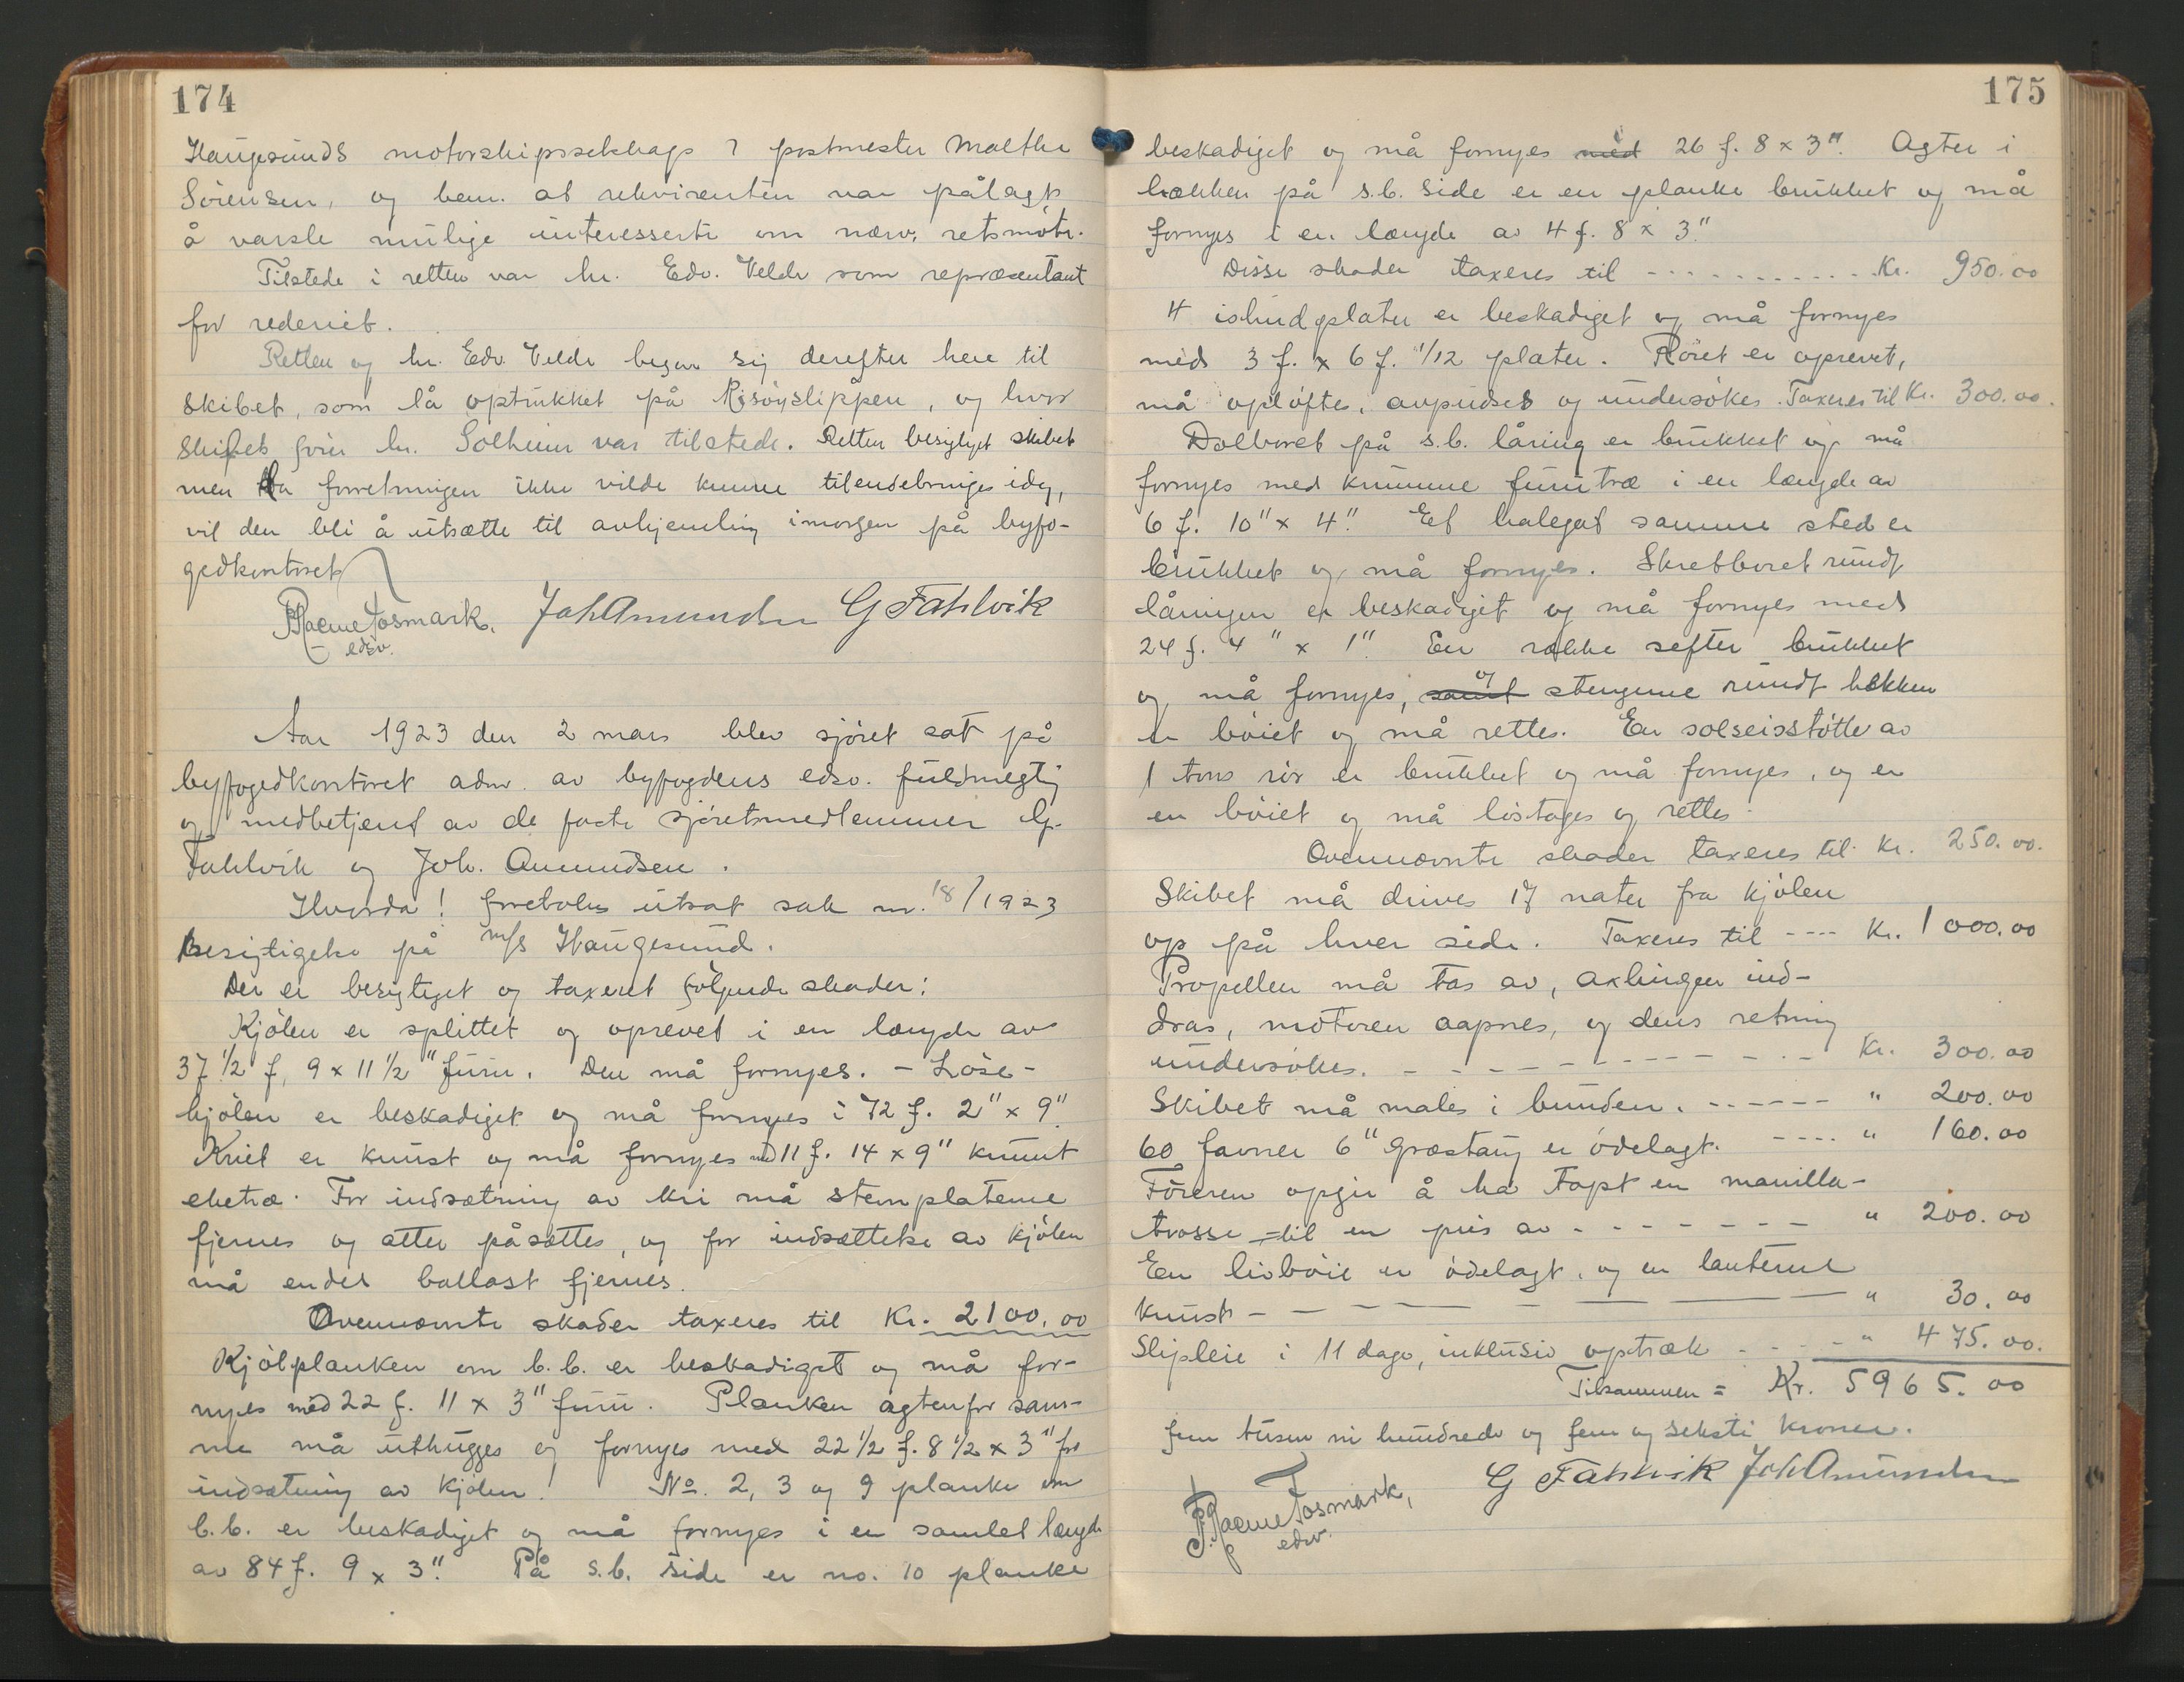 174
Haugesunds motorskipsselskap v postmester Malthe
Sörensen, og bem. at rekvirenten var pålagt
å varsle mulige interesserte om nærv. retsmöte.
Tilstede i retten var hr. Edv. Velde som repræsentant
for rederiet.
Retten og hr. Edv. Velde begav sig derefter hen til
skibet, som lå optrukket på Risöyslippen, og hvor
skibets förer hr. Solheim var tilstede. Retten besigtiget skibet
men da forretningen ikke vilde kunne tilendebringes idag,
vil den bli å utsætte til avhjemling imorgen på byfo-
gedkontoret
Fosmark, Joh Amundsen G Fahlvik
edsv.
Aar 1923 den 2 mars blev sjöret sat på
byfogedkontoret adm. av byfogdens edsv. fuldmegtig
og medbetjent av de faste sjöretsmedlemmer G.
Fahlvik og Joh. Amundsen.
Hvorda! foretokes utsat sak nr. 18/1923
besigtigelse på m/s Haugesund.
Der er besigtiget og taxeret fölgende skader:
Kjölen er splittet og oprevet i en længde av
37 1/2 f, 9 x 11 1/2" furu. Den må fornyes. - Löse-
kjölen er beskadiget og må fornyes i 72 f. 2" x 9".
Kniet er knust og må fornyes med 11 f. 14 x 9" krumt
eketræ. For indsætning av kni må stemplatene
fjernes og atter påsættes, og for indsættelse av kjölen
må endel ballast fjernes.
Ovennævnte skader taxeres til Kr. 2100.00
Kjölplanken om b.b. er beskadiget og må for-
nyes med 22 f. 11 x 3" furu. Planken agtenfor sam-
me må uthugges og fornyes med 22 1/2 f. 8 1/2 x 3" for
indsætning av kjölen. No. 2, 3 og 9 planke om
b.b. er beskadiget og må fornyes i en samlet længde
av 84 f. 9 x 3". På s.b. side er no. 10 planke
175
beskadiget og må fornyes med 26 f. 8 x 3". Agter i
hækken på s.b. side er en planke brukket og må
fornyes i en længde av 4 f. 8 x 3."
Disse skader taxeres til - - - - - - - - - - - Kr. 950.00
4 ishudplater er beskadiget og må fornyes
med 3 f. x 6 f. 1/12 plater. Röret er oprevet,
må oplöftes, avpudses og undersökes. Taxeres til Kr. 300.00.
Dolboret på s.b. låring er brukket og må
fornyes med krumme furutræ i en længde av
6 f. 10" x 4". Et halegat samme sted er
brukket og må fornyes. Skretboret rundt
låringen er beskadiget og må fornyes med
24 f. 4" x 1". En række sefter brukket
og må fornyes, samt og stengerne rundt hækken
er böiet og må rettes. En solseisstötte av
1 toms rör er brukket og må fornyes, og en
en böiet og må löstages og rettes.
Ovennævnte skader taxeres til Kr. 250.00.
Skibet må drives 17 nater fra kjölen
op på hver side. Taxeres til ---- Kr. 1000.00
Propellen må tas av, axlingen ind-
dras, motoren aapnes, og dens retning
undersökes. - - - - - - - - - - Kr. 300.00
Skibet må males i bunden. - - - - - - " 200.00
60 favner 6" græstaug er ödelagt. ---- " 160.00
Föreren opgir å ha tapt en manilla-
trosse til en pris av - - - - - - - " 200.00
En livböie er ödelagt, og en lanterne
knust - - - - - - - - " 30.00
Slipleie i 11 dage, inklusiv optræk - - - - " 475.00.
Tilsammen = Kr. 5965.00
fem tusen ni hundrede og fem og seksti kroner.
G Fahlvik Joh Amundsen
Fosmark,
edsv.